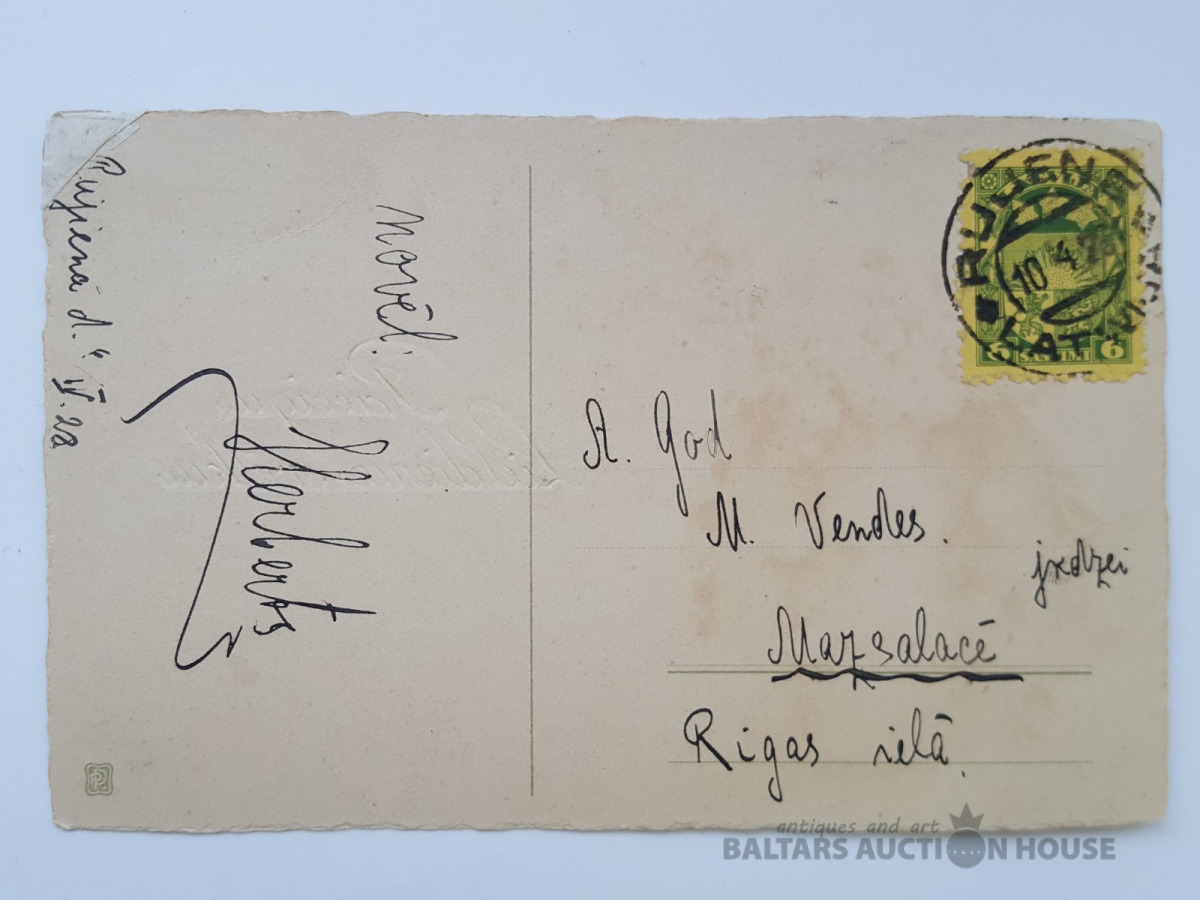 Rujienā d.
IV. 28
novēl:
Herberts
RUJIENA
10 4 28
LATVIJA
6 SANTIMI 6
A. God
M. Vendes.
jxdzei
Mazsalacē
Rigas ielā.
antiques and art
BALTARS AUCTION HOUSE